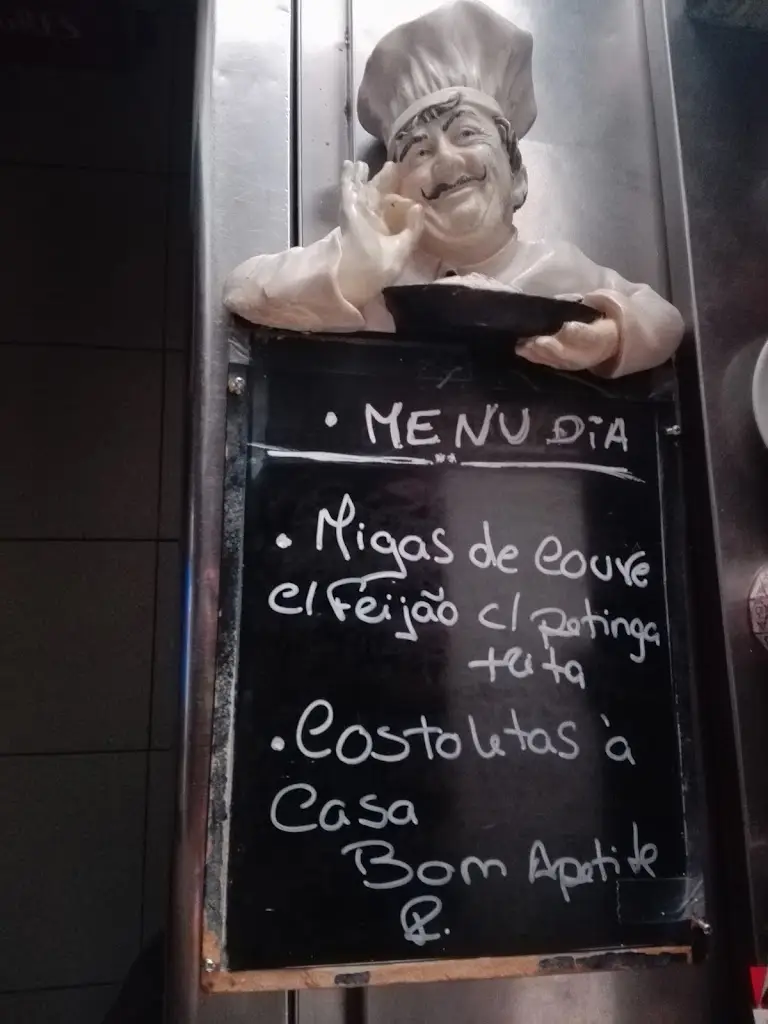 • MENU DiA
• Migas de couve
c/ Feijão c/ petinga
frita
• Costoletas à
Casa
Bom Apetite
R.